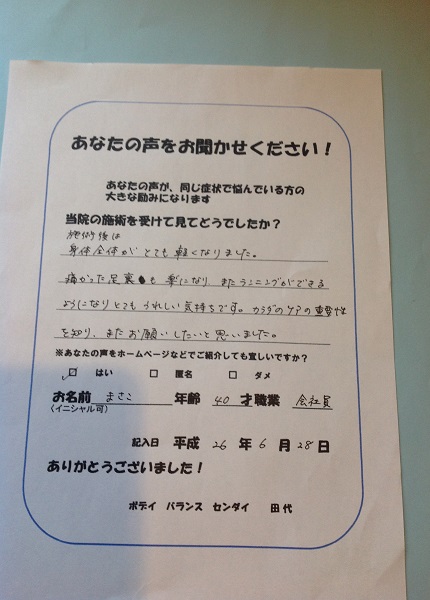 あなたの声をお聞かせください！
あなたの声が、同じ症状で悩んでいる方の
大きな励みになります
当院の施術を受けて見てどうでしたか？
施術後は
身体全体がとても軽くなりました。
痛かった足裏も楽になり またランニングができる
ようになりとてもうれしい気持ちです。カラダのケアの重要性
を知り、またお願いしたいと思いました。
※あなたの声をホームページなどでご紹介しても宜しいですか？
☑ はい □ 匿名 □ ダメ
お名前 まさこ 年齢 40 才 職業 会社員
（イニシャル可）
記入日 平成 26 年 6 月 28 日
ありがとうございました！
ボデイ バランス センダイ 田代